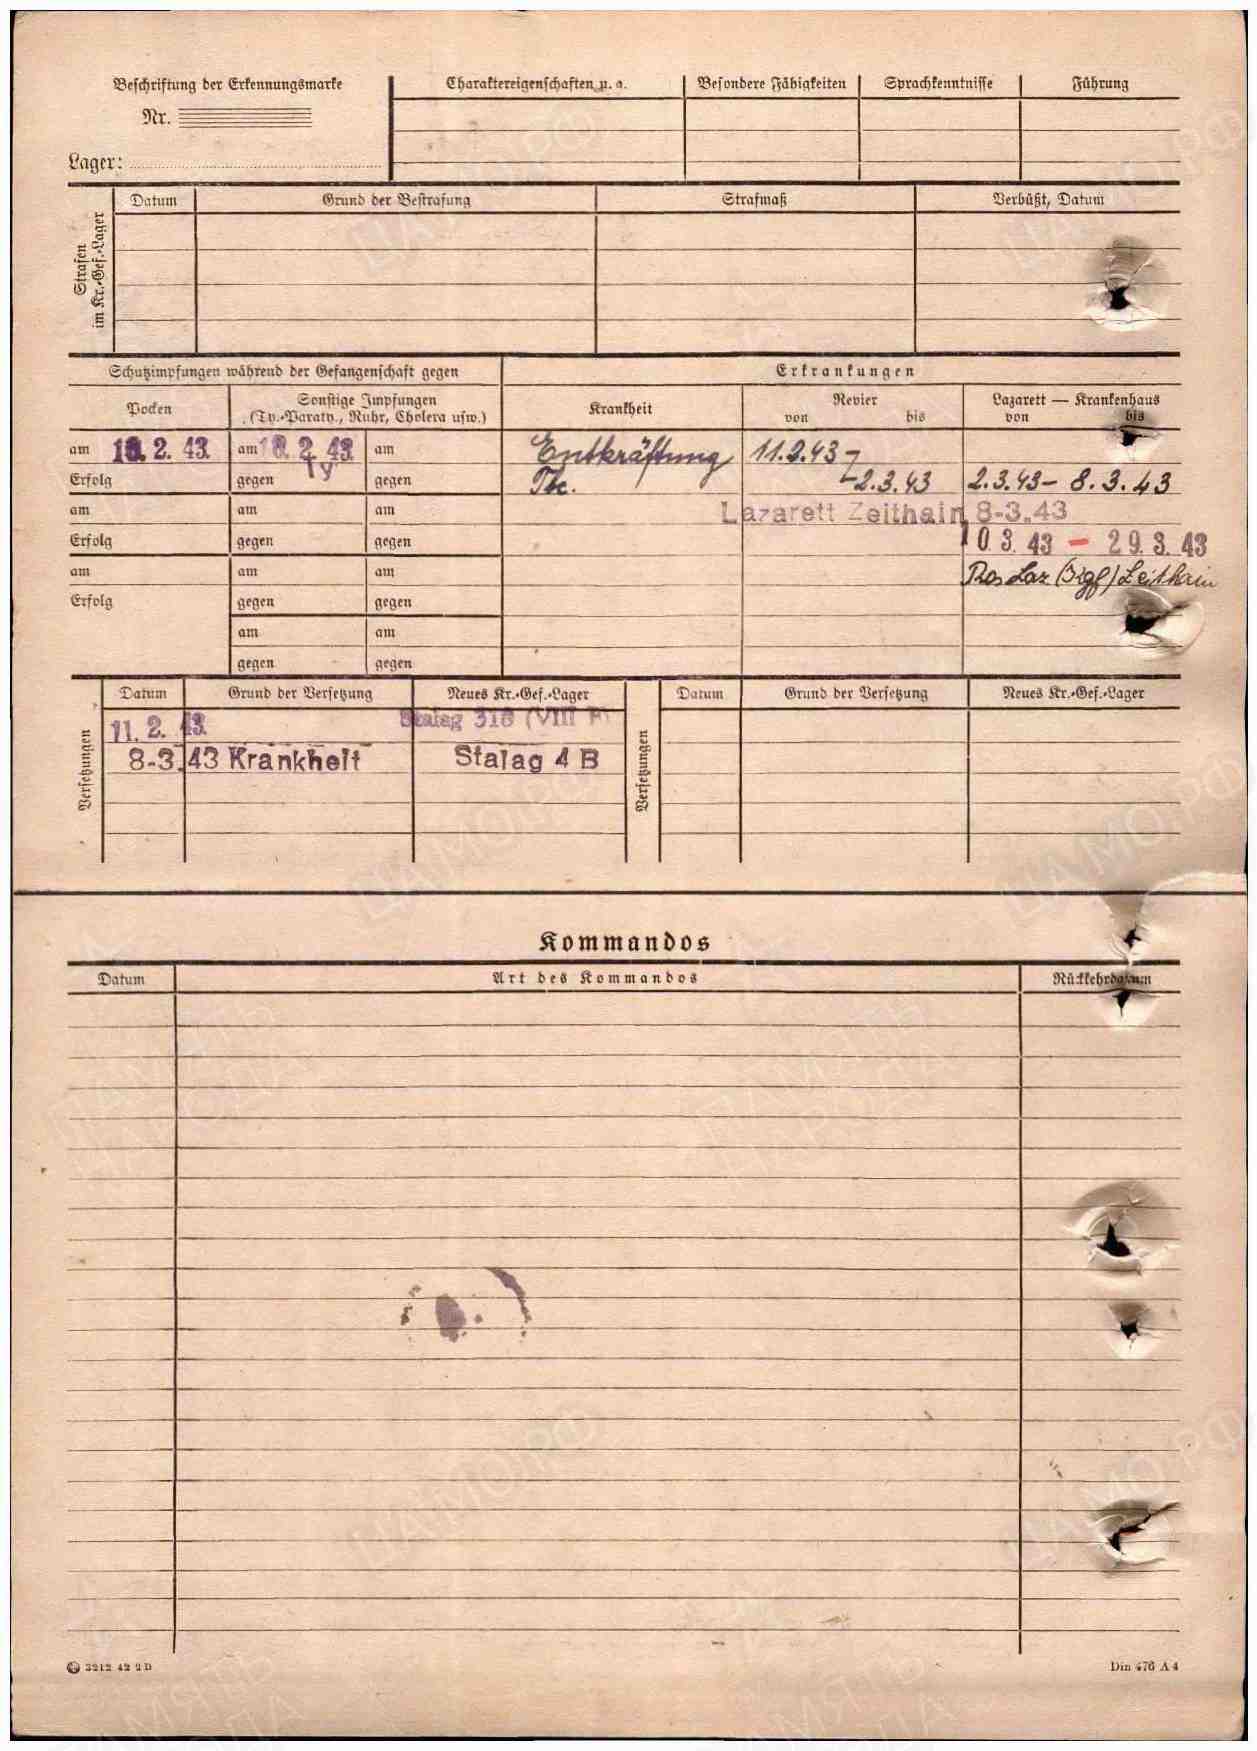 Beschriftung der Erkennungsmarke
Nr.
Lager:
Charaktereigenschaften u. a.
Besondere Fähigkeiten
Sprachkenntnisse
Führung
Strafen im Kr.-Gef.-Lager
Datum
Grund der Bestrafung
Strafmaß
Verbüßt, Datum
Schutzimpfungen während der Gefangenschaft gegen
Erkrankungen
Pocken
Sonstige Impfungen
(Ty.-Paraty., Ruhr, Cholera usw.)
Krankheit
Revier
von bis
Lazarett — Krankenhaus
von bis
am 18. 2. 43. am 18. 2. 43. am
Entkräftung 11.2.43 -
Erfolg gegen Ty gegen
Tbc. - 2.3.43 2.3.43 - 8.3.43
am am am
Lazarett Zeithain 8-3.43
Erfolg gegen gegen
10. 3. 43 - 29. 3. 43
am am am
Res Laz (Kgf) Zeithain
Erfolg gegen gegen
am am
gegen gegen
Versetzungen
Datum Grund der Versetzung Neues Kr.-Gef.-Lager
11. 2. 43. Stalag 318 (VIII F)
8-3.43 Krankheit Stalag 4 B
Versetzungen
Datum Grund der Versetzung Neues Kr.-Gef.-Lager
Kommandos
Datum Art des Kommandos Rückkehrdatum
3212 42 2 D
Din 476 A 4
ПАМЯТЬ НАРОДА
ЦАМО.РФ